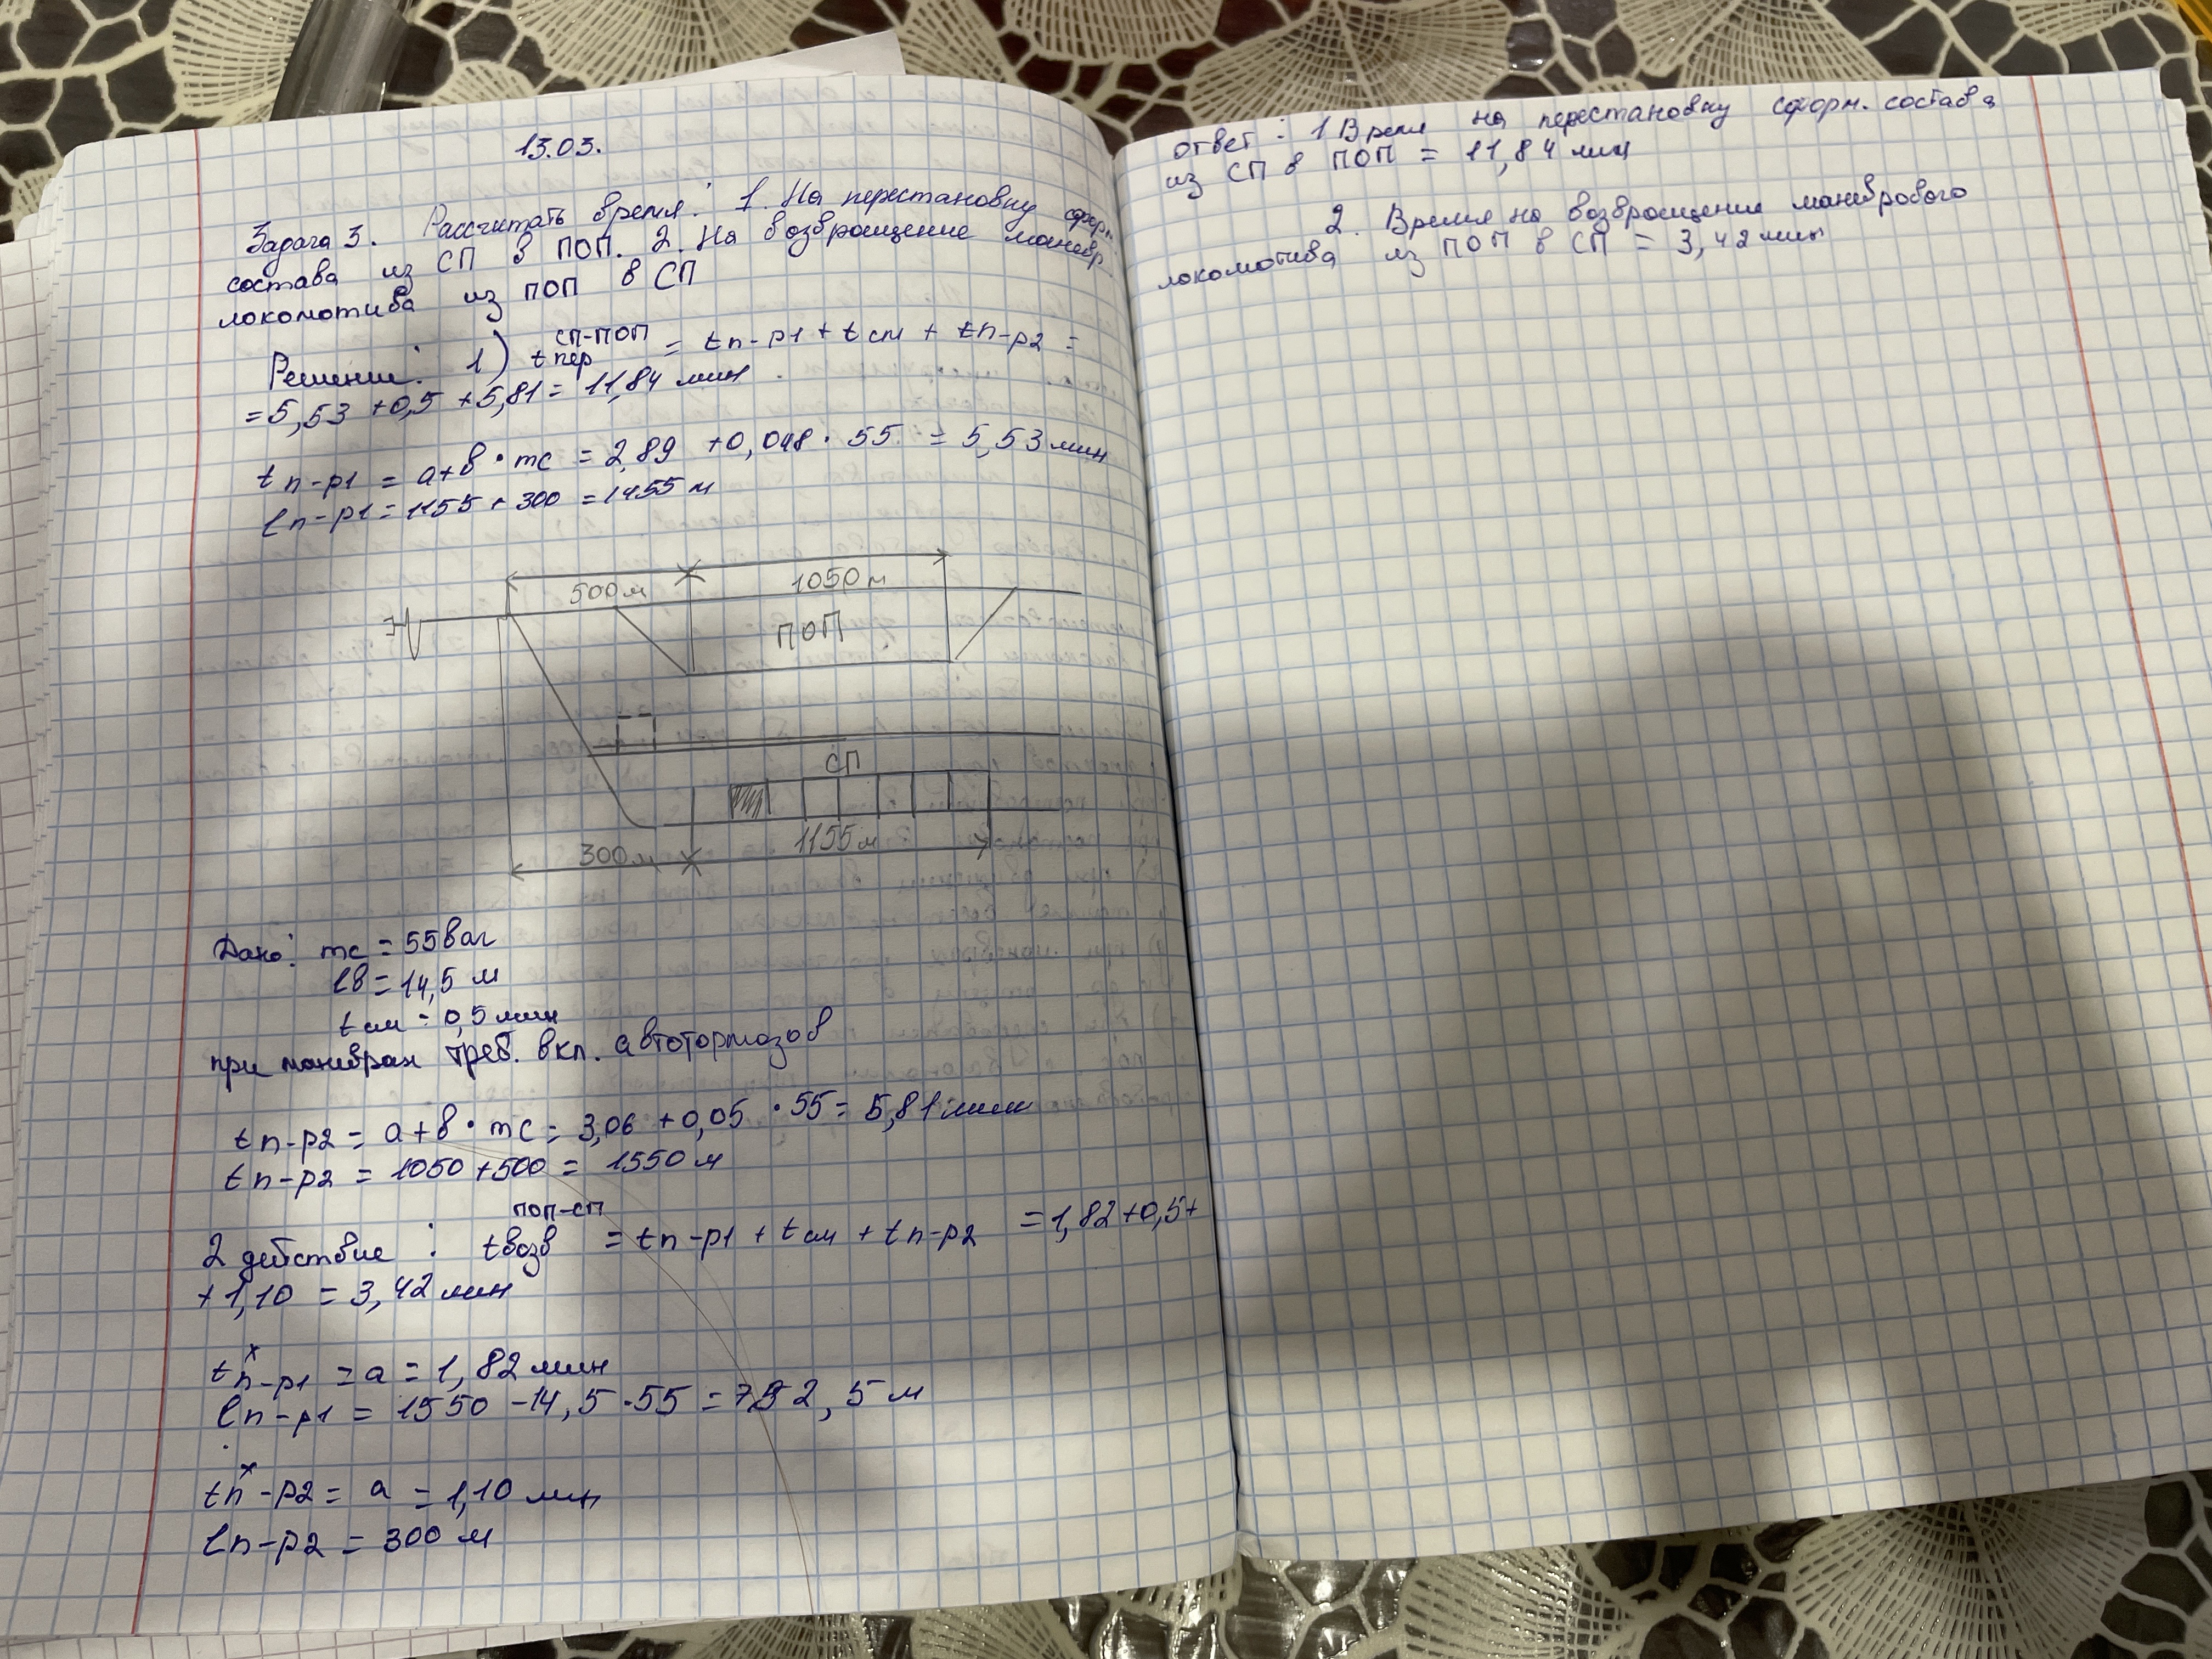 13.03.
Задача 3. Рассчитать время: 1. На перестановку сформ.
состава из СП в ПОП. 2. На возвращение маневр.
локомотива из ПОП в СП
Решение: 1) t пер СП-ПОП = tп-р1 + tсм + tп-р2 =
= 5,53 + 0,5 + 5,81 = 11,84 мин.
tп-р1 = a+в · mc = 2,89 + 0,048 · 55 = 5,53 мин
lп-р1 = 1155 + 300 = 1455 м
500м 1050м
ПОП
СП
300м 1155м
Дано: mc = 55 ваг
lв = 14,5 м
tсм = 0,5 мин
при манёврах треб. вкл. автотормозов
tп-р2 = a+в · mc = 3,06 + 0,05 · 55 = 5,81 мин
tп-р2 = 1050 + 500 = 1550 м
2 действие : tвозв ПОП-СП = tп-р1 + tсм + tп-р2 = 1,82 + 0,5 +
+ 1,10 = 3,42 мин
tп-р1 x = a = 1,82 мин
lп-р1 = 1550 - 14,5 · 55 = 752,5 м
tп-р2 x = a = 1,10 мин
lп-р2 = 300 м
ответ: 1 Время на перестановку сформ. состава
из СП в ПОП = 11,84 мин
2. Время на возвращение маневрового
локомотива из ПОП в СП = 3,42 мин